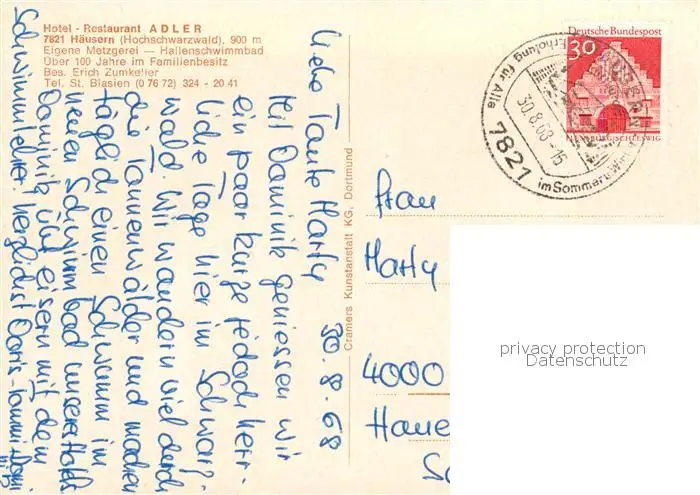 Hotel - Restaurant ADLER
7821 Häusern (Hochschwarzwald), 900 m
Eigene Metzgerei — Hallenschwimmbad
Über 100 Jahre im Familienbesitz
Bes. Erich Zumkeller
Tel. St. Blasien (0 76 72) 324 - 20 41
Liebe Tante Marty 30.8.68
Mit Dominik geniessen wir
ein paar kurze jedoch herr-
liche Tage hier im Schwarz-
wald. Wir wandern viel durch
die Tannenwälder und machen
täglich einen Schwumm im
neuen Schwimmbad unseres Hotels
Dominik übt eisern mit dem
Schwimmlehrer herzlichst Doris
Cramers Kunstanstalt KG, Dortmund
Deutsche Bundespost
30
FLENSBURG/SCHLESWIG
Erholung für Alle
30.8.68-15
7821
im Sommer u. Winter
Frau
Marty
4000
privacy protection
Datenschutz